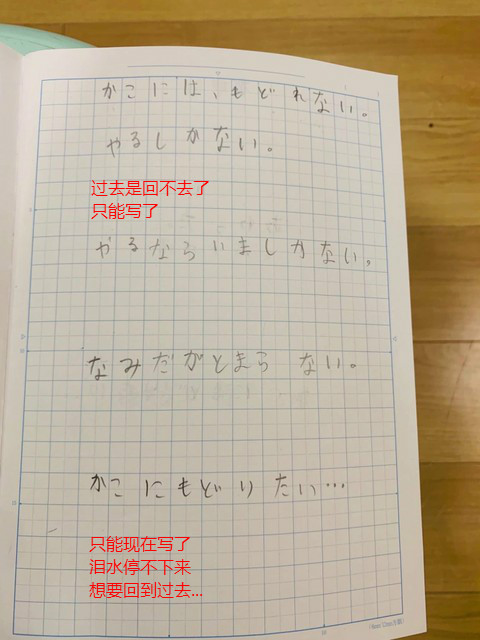 かこには、もどれない。
やるしかない。
过去是回不去了
只能写了
やるならいましかない。
なみだがとまら ない。
かこ にもどり たい…
只能现在写了
泪水停不下来
想要回到过去...